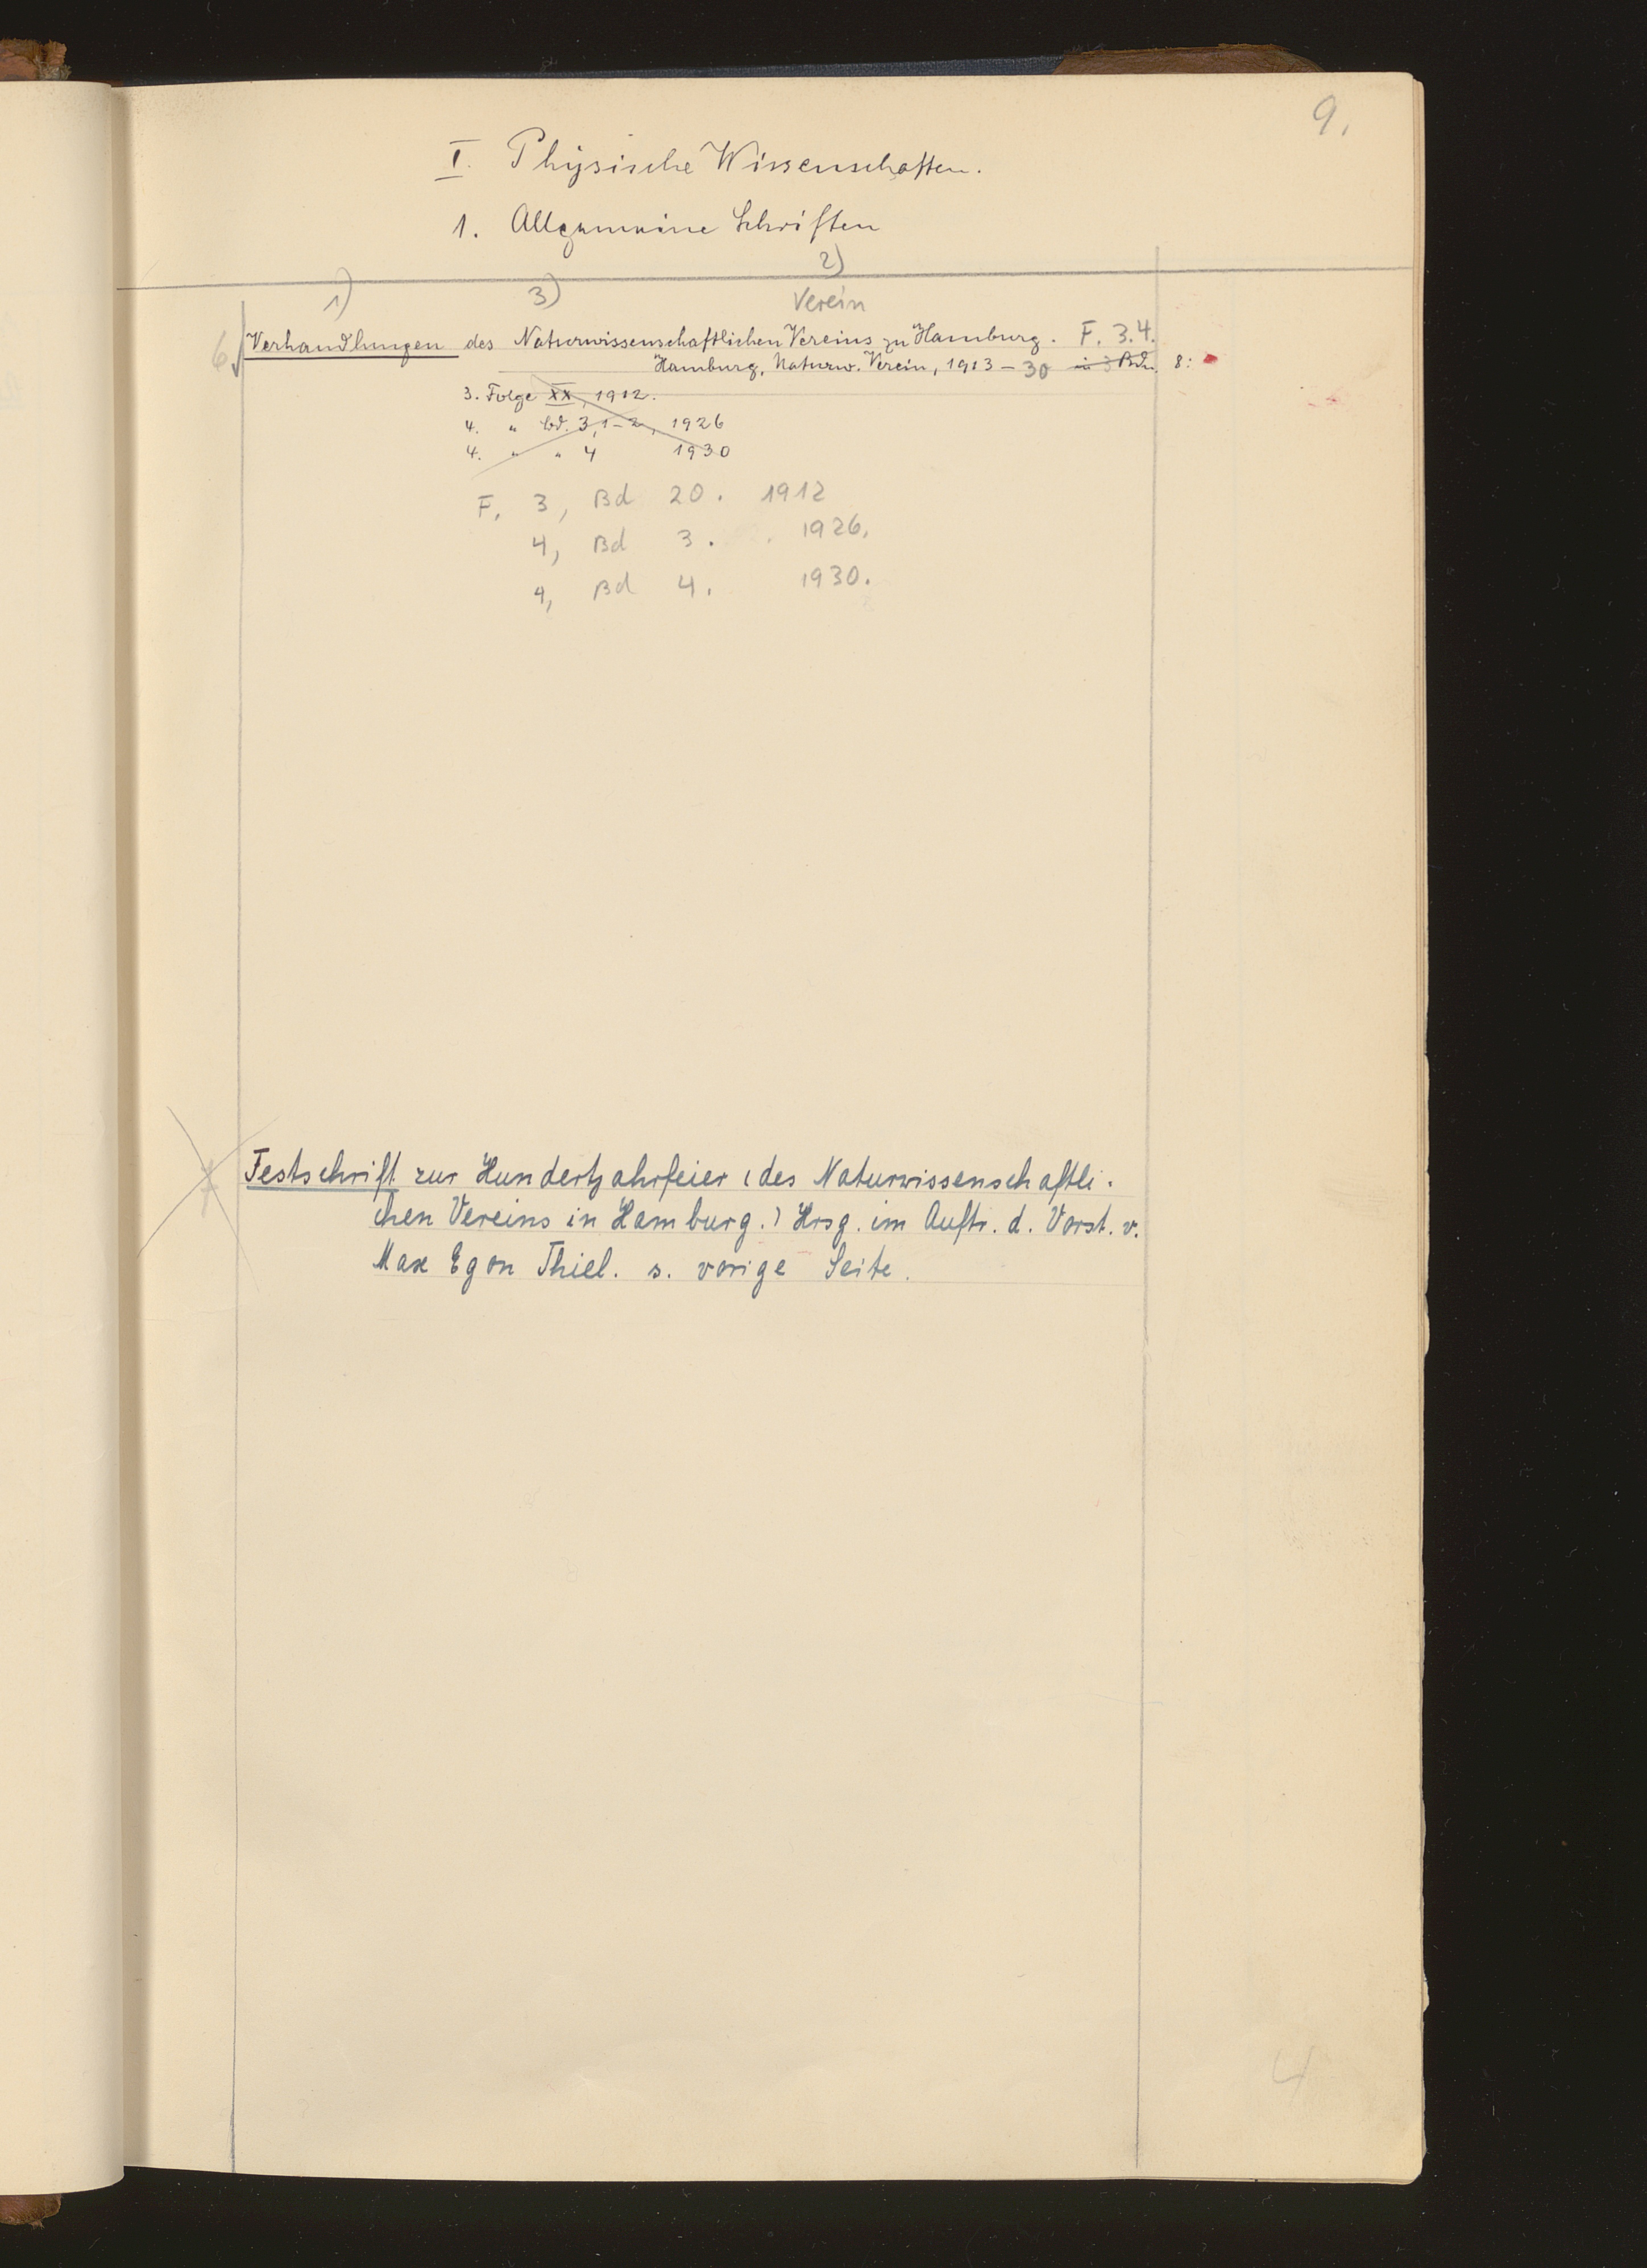 9.
I. Physische Wissenschaften.
1. Allgemeine Schriften
1) 3) 2)
Verein
6. Verhandlungen des Naturwissenschaftlichen Vereins zu Hamburg. F. 3.4.
Hamburg, Naturw. Verein, 1913-30 in 3 Bdn. 8:
3. Folge XX, 1912.
4. " bd. 3,1-2, 1926
4. " " 4 1930
F. 3, Bd 20. 1912
4, Bd 3. 1926.
4, Bd 4. 1930.
Festschrift zur Hundertjahrfeier (des Naturwissenschaftli-
chen Vereins in Hamburg.) Hrsg. im Auftr. d. Vorst. v.
Max Egon Thiel. s. vorige Seite.
4